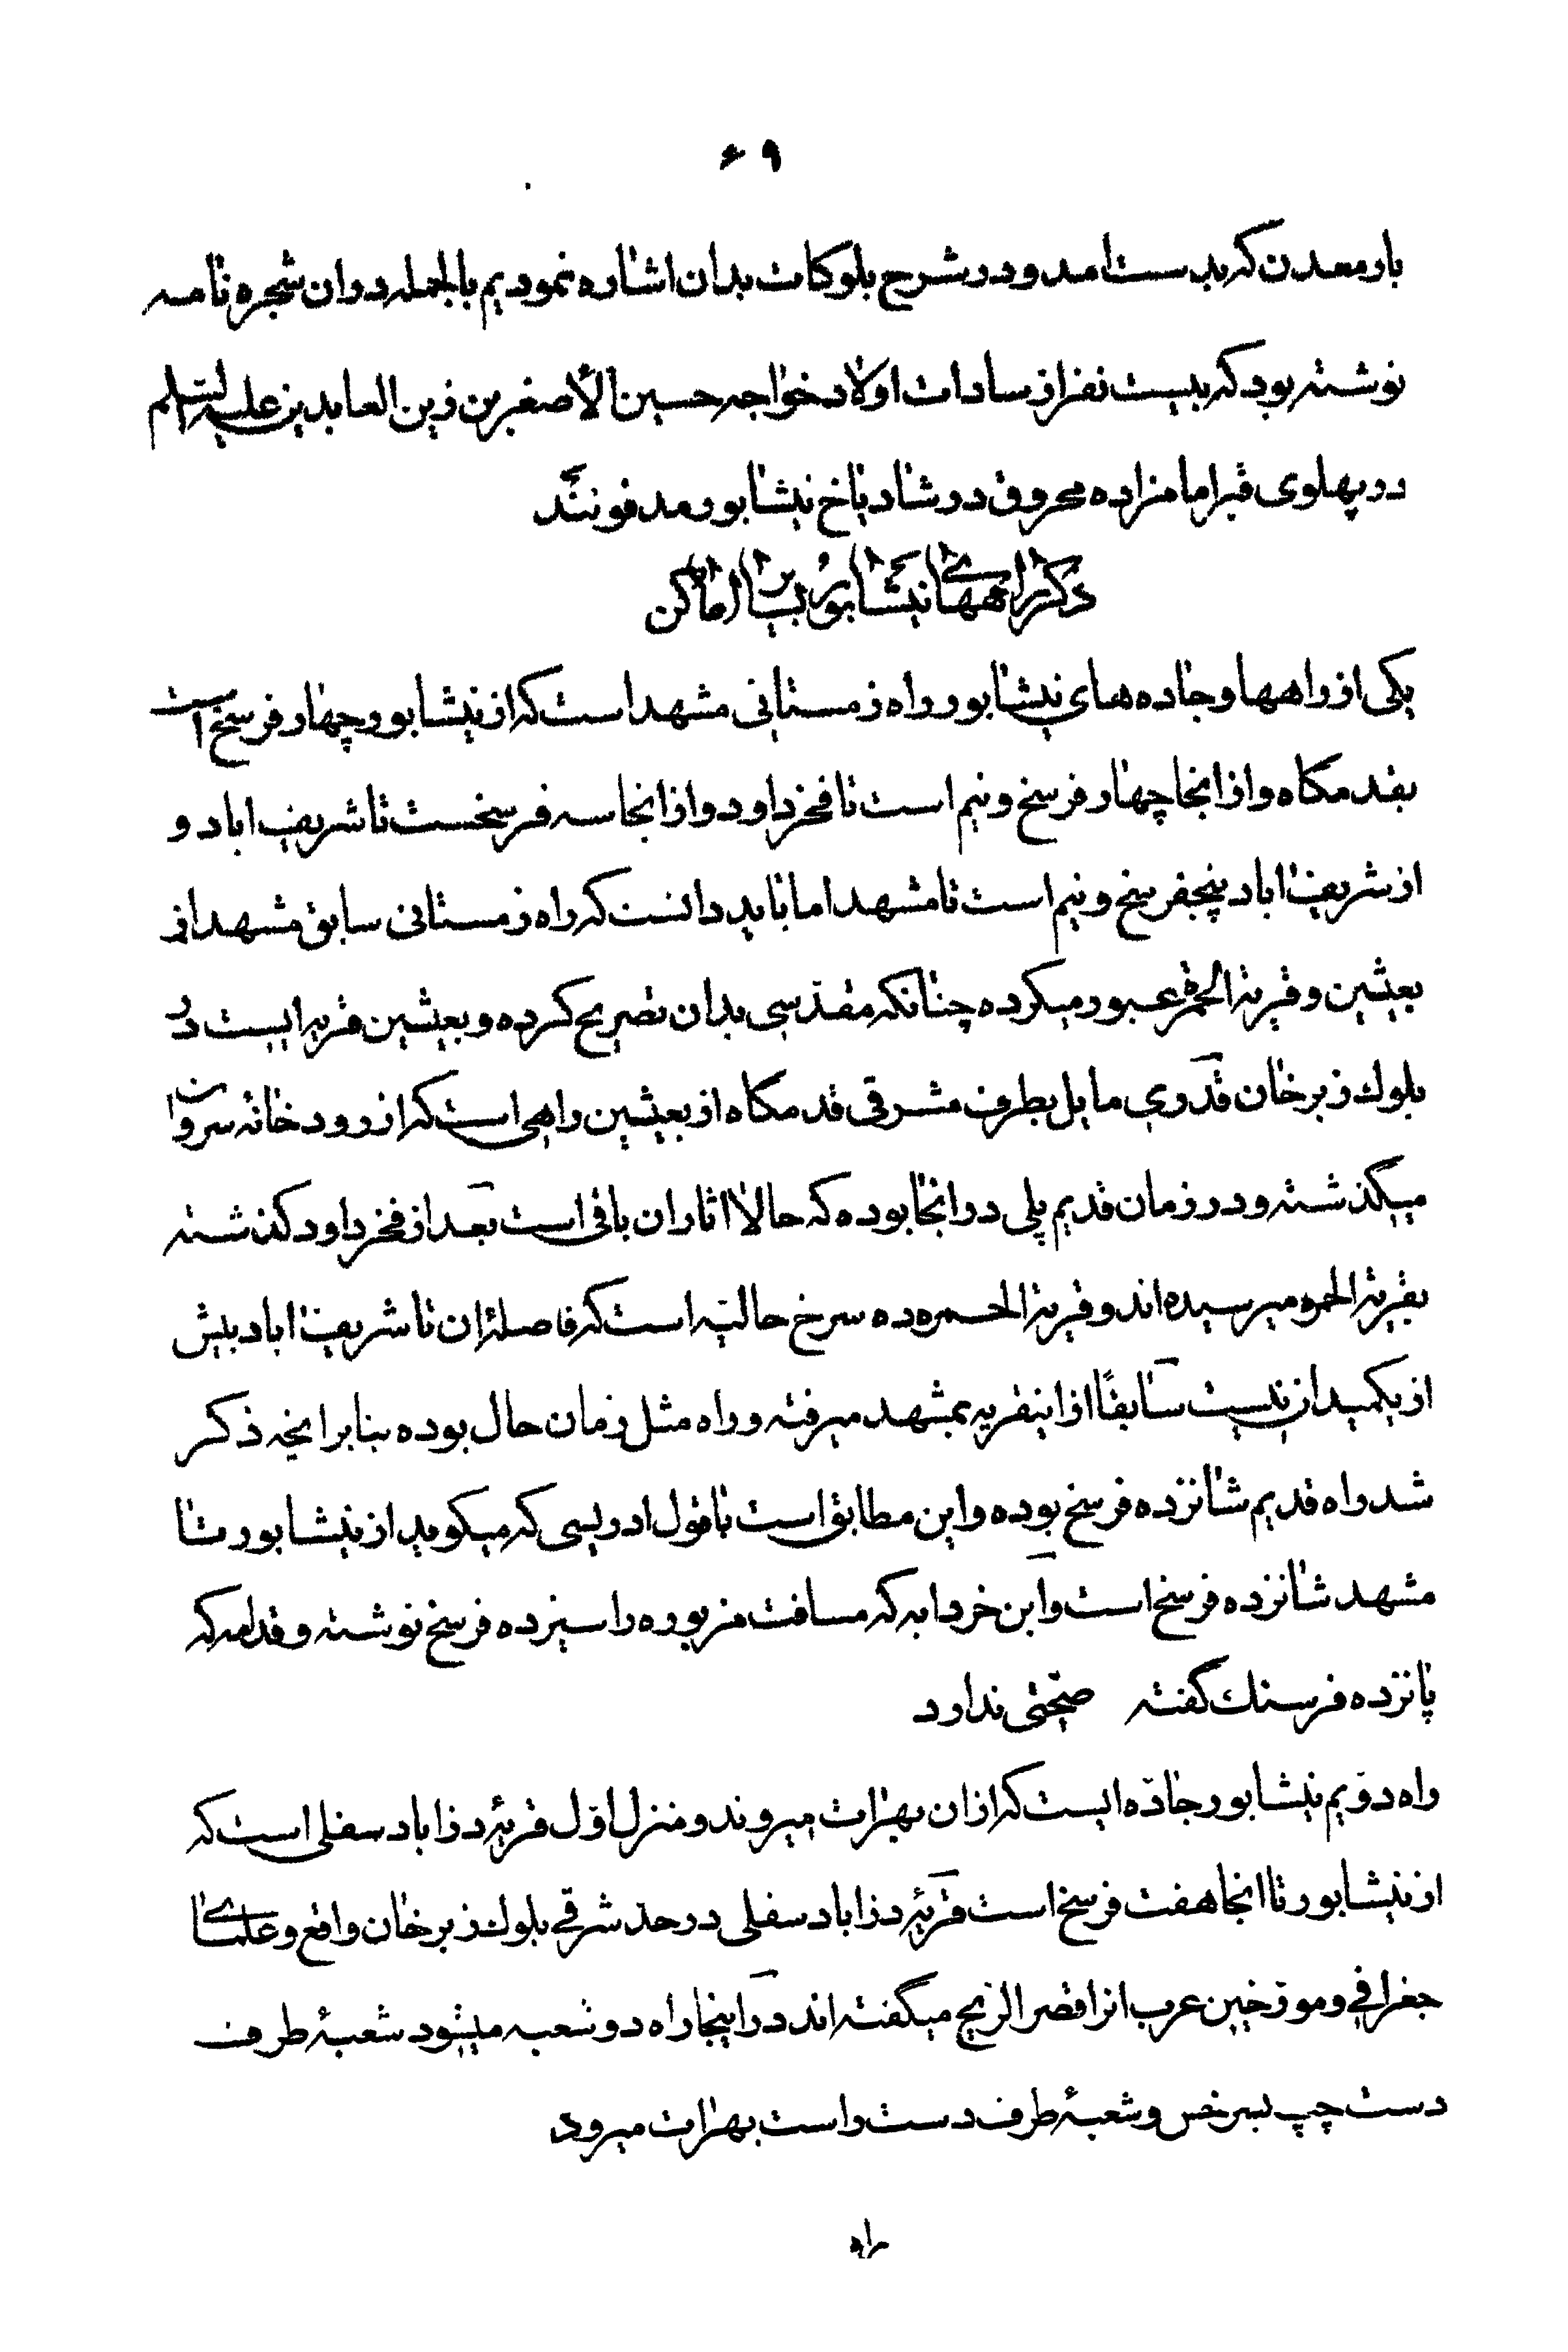 ۶۹
بارمعدن که بدست امد و در شرح بلوکات بدان اشاره نمودیم بالجمله در ان شجره نامه
نوشته بود که بیست نفر از سادات اولاد خواجه حسین الأصغر بن زین العابدین علیه السلم
در پهلوی قبر امامزاده محروق در شادیاخ نیشابور مدفونند
ذکر راههای نیشابور با اماکن
یکی از راهها و جاده های نیشابور راه زمستانی مشهد است که از نیشابور چهار فرسخ است
بقدمکاه و از انجا چهار فرسخ و نیم است تا فخرداود و از انجا سه فرسخست تا شریف اباد و
از شریف اباد پنجفرسخ و نیم است تا مشهد اما باید دانست که راه زمستانی سابق مشهد از
بعیثین و قریة الحمره عبور میکرده چنانکه مقدّسی بدان تصریح کرده و بعیثین قریه ایست در
بلوک زبرخان قدری مایل بطرف مشرقی قدمکاه از بعیثین راهی است که از رودخانه سروان
میگذشته و در زمان قدیم پلی در انجا بوده که حالا اثار ان باقی است بعد از فخرداود کذشته
بقریة الحمره میرسیده اند و قریة الحمره ده سرخ حالیّه است که فاصلهٔ ان تا شریف اباد بیش
از یکمیدان نیست سابقاً از اینقریه بمشهد میرفته و راه مثل زمان حال بوده بنابر انچه ذکر
شد راه قدیم شانزده فرسخ بوده و این مطابق است با قول ادریسی که میکوید از نیشابور تا
مشهد شانزده فرسخ است و ابن خردابه که مسافت مزبوره را سیزده فرسخ نوشته و قدامه که
پانزده فرسنك گفته صحّتی ندارد
راه دوّیم نیشابور جادّه ایست که از ان بهرات میروند و منزل اوّل قریهٔ دزاباد سفلی است که
از نیشابور تا انجا هفت فرسخ است قریهٔ دزاباد سفلی در حدّ شرقی بلوك زبرخان واقع و علمای
جغرافی و مورّخین عرب انرا قصر الریح میگفته اند در اینجا راه دو شعبه میشود شعبهٔ طرف
دست چپ بسرخس و شعبهٔ طرف دست راست بهرات میرود
راه